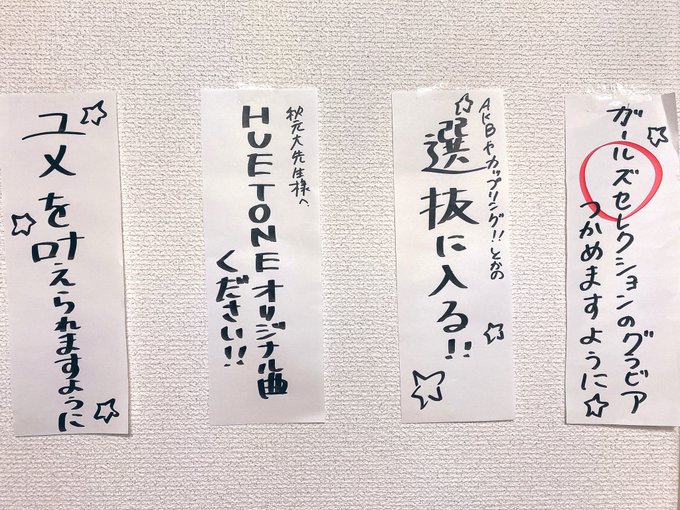 ガールズセレクションのグラビア
つかめますように
AKBやカップリング!!とかの
選抜に入る!!
秋元大先生様へ
HUETONEオリジナル曲
ください!!
ユメを叶えられますように